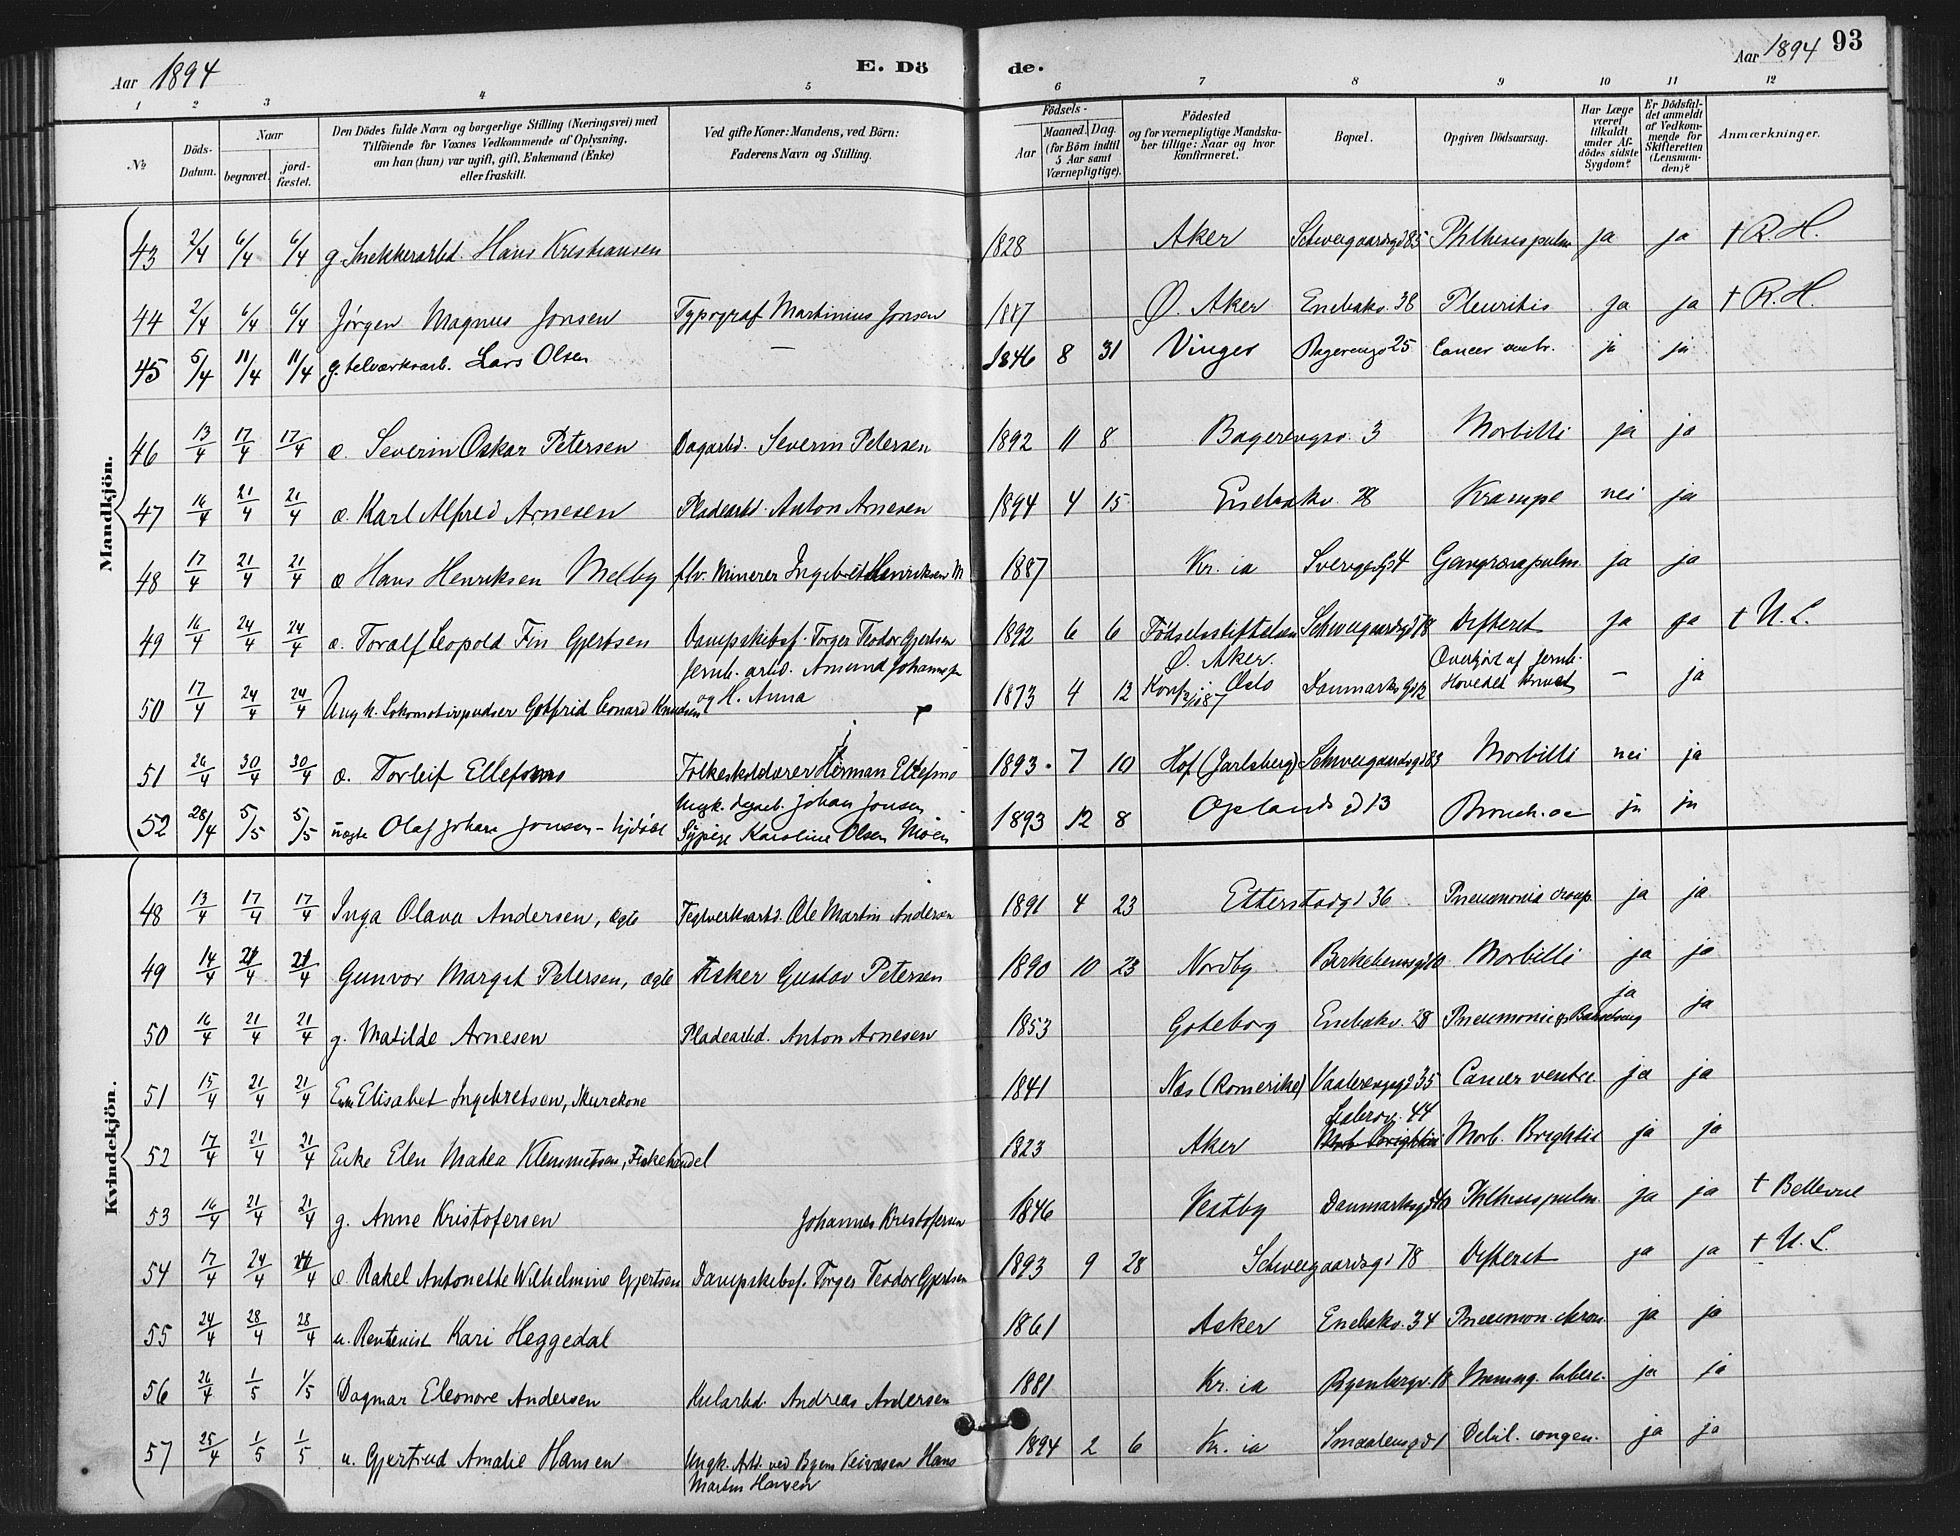 Aar 1894 E. Dö de. Aar 1894 93
1 2 3 4 5 6 7 8 9 10 11 12
№ Döds-Datum. Naar begravet. jord-fæstet. Den Dödes fulde Navn og borgerlige Stilling (Næringsvei) med Tilföiende for Voxnes Vedkommende af Oplysning, om han (hun) var ugift, gift, Enkemand (Enke) eller fraskilt. Ved gifte Koner: Mandens, ved Börn: Faderens Navn og Stilling. Födsels- Aar Maaned. Dag. (for Börn indtil 5 Aar samt Værnepligtige). Födested og for værnepligtige Mandska-ber tillige: Naar og hvor konfirmeret. Bopæl. Opgiven Dödsaarsag. Har Læge været tilkaldt under Af-dödes sidste Sygdom? Er Dödsfal-det anmeldt af Vedkom-mende for Skifteretten (Lensman-den)? Anmærkninger.
Mandkjön.
43 2/4 6/4 6/4 g. Snekkerarbd. Hans Kristiansen 1828 Aker Schweigaardsgd 85 Phthisis pulm ja ja † R. H.
44 2/4 6/4 6/4 Jørgen Magnus Jonsen Typograf Martinius Jonsen 1887 Ø. Aker Enebakv. 38 Pleuritis ja ja † R. H.
45 5/4 11/4 11/4 g. telværksarb. Lars Olsen — 1846 8 31 Vinger 25 Cancer ja ja
46 13/4 17/4 17/4 æ. Severin Oskar Petersen Dagarbd. Severin Petersen 1892 11 8 Bagerengsv. 3 Morbilli ja ja
47 16/4 21/4 21/4 æ. Karl Alfred Arnesen Pladearbd. Anton Arnesen 1894 4 15 Enebakv. 28 Krampe nei ja
48 17/4 21/4 21/4 æ Hans Henriksen Melby flv. Minerer Ingebret Henriksen M 1887 Kr. ia Sverigesgd 4 Gangræna pulm. ja ja
49 16/4 24/4 24/4 æ. Toralf Leopold Fin Gjertsen Dampskibsf. Torger Teodor Gjertsen 1892 6 6 Fødselsstiftelsen Schweigaardsgd 78 Difterit ja ja † U. L.
50 17/4 24/4 24/4 Ungk. Lokomotivpudser Gotfrid Leonard Knudsen Jernb. arbd. Amund Johannes og H. Anna 1873 4 12 Ø. Aker. Konf. i Oslo 87 Danmarks Gd 12 Overkjørt af Jernb. Hovedet knust — ja
51 26/4 30/4 30/4 æ. Torleif Ellefsmo Folkeskolelærer Herman Ellefsmo 1893. 7 10 Hof (Jarlsberg) Schweigaardsgd 83 Morbilli nei ja
52 28/4 5/5 5/5 uægte Olaf Johan Jonsen - hjdøbt Ungk. dagarb. Johan Jonsen Sypige Karoline Olsen Moen 1893 12 8 Oplands gd 13 Bronch. ac ja ja
Kvindekjön.
48 13/4 17/4 17/4 Inga Olava Andersen, ægte Teglverksarbd. Ole Martin Andersen 1891 4 23 Etterstadgd 36 Pneumonia croup. ja ja
49 14/4 21/4 21/4 Gunvor Margit Petersen, ægte Fisker Gustav Petersen 1890 10 23 Nordby Birkebeinergd 10 Morbilli ja ja
50 16/4 21/4 21/4 g. Matilde Arnesen Pladearbd. Anton Arnesen 1853 Gøteborg Enebakv. 28 Pneumonie og Barselseng ja ja
51 15/4 21/4 21/4 Enke Elisabet Ingebretsen, Skurekone 1841 Næs (Romerike) Vaalerenggd 35 Cancer ventric ja ja
52 17/4 21/4 21/4 Enke Elen Matea Klemmetsen, Fiskehandel 1823 Aker 44 Morb. Brightii ja ja
53 16/4 21/4 21/4 g. Anne Kristofersen Johannes Kristofersen 1846 Vestby Danmarksgd 10 Phthisis pulm. ja ja † Bellevue
54 17/4 24/4 24/4 æ. Rakel Antonette Wilhelmine Gjertsen Dampskibsf. Torger Teodor Gjertsen 1893 9 28 Schweigaardsgd 78 Difterit ja ja † U. L.
55 24/4 28/4 28/4 u. Rentenist Kari Heggedal 1861 Asker Enebakv. 34 Pneumon. chron. ja ja
56 26/4 1/5 1/5 Dagmar Eleonore Andersen Kularbd. Andreas Andersen 1881 Kr. ia Ryenbergv. 18 Mening. tuberc. ja ja
57 25/4 1/5 1/5 u. Gjertrud Amalie Hansen Ungk. Arbd. ved Byens Veivæsen Hans Martin Hansen 1894 2 6 Kr. ia Smaalensgd 1 Debil. congen. ja ja